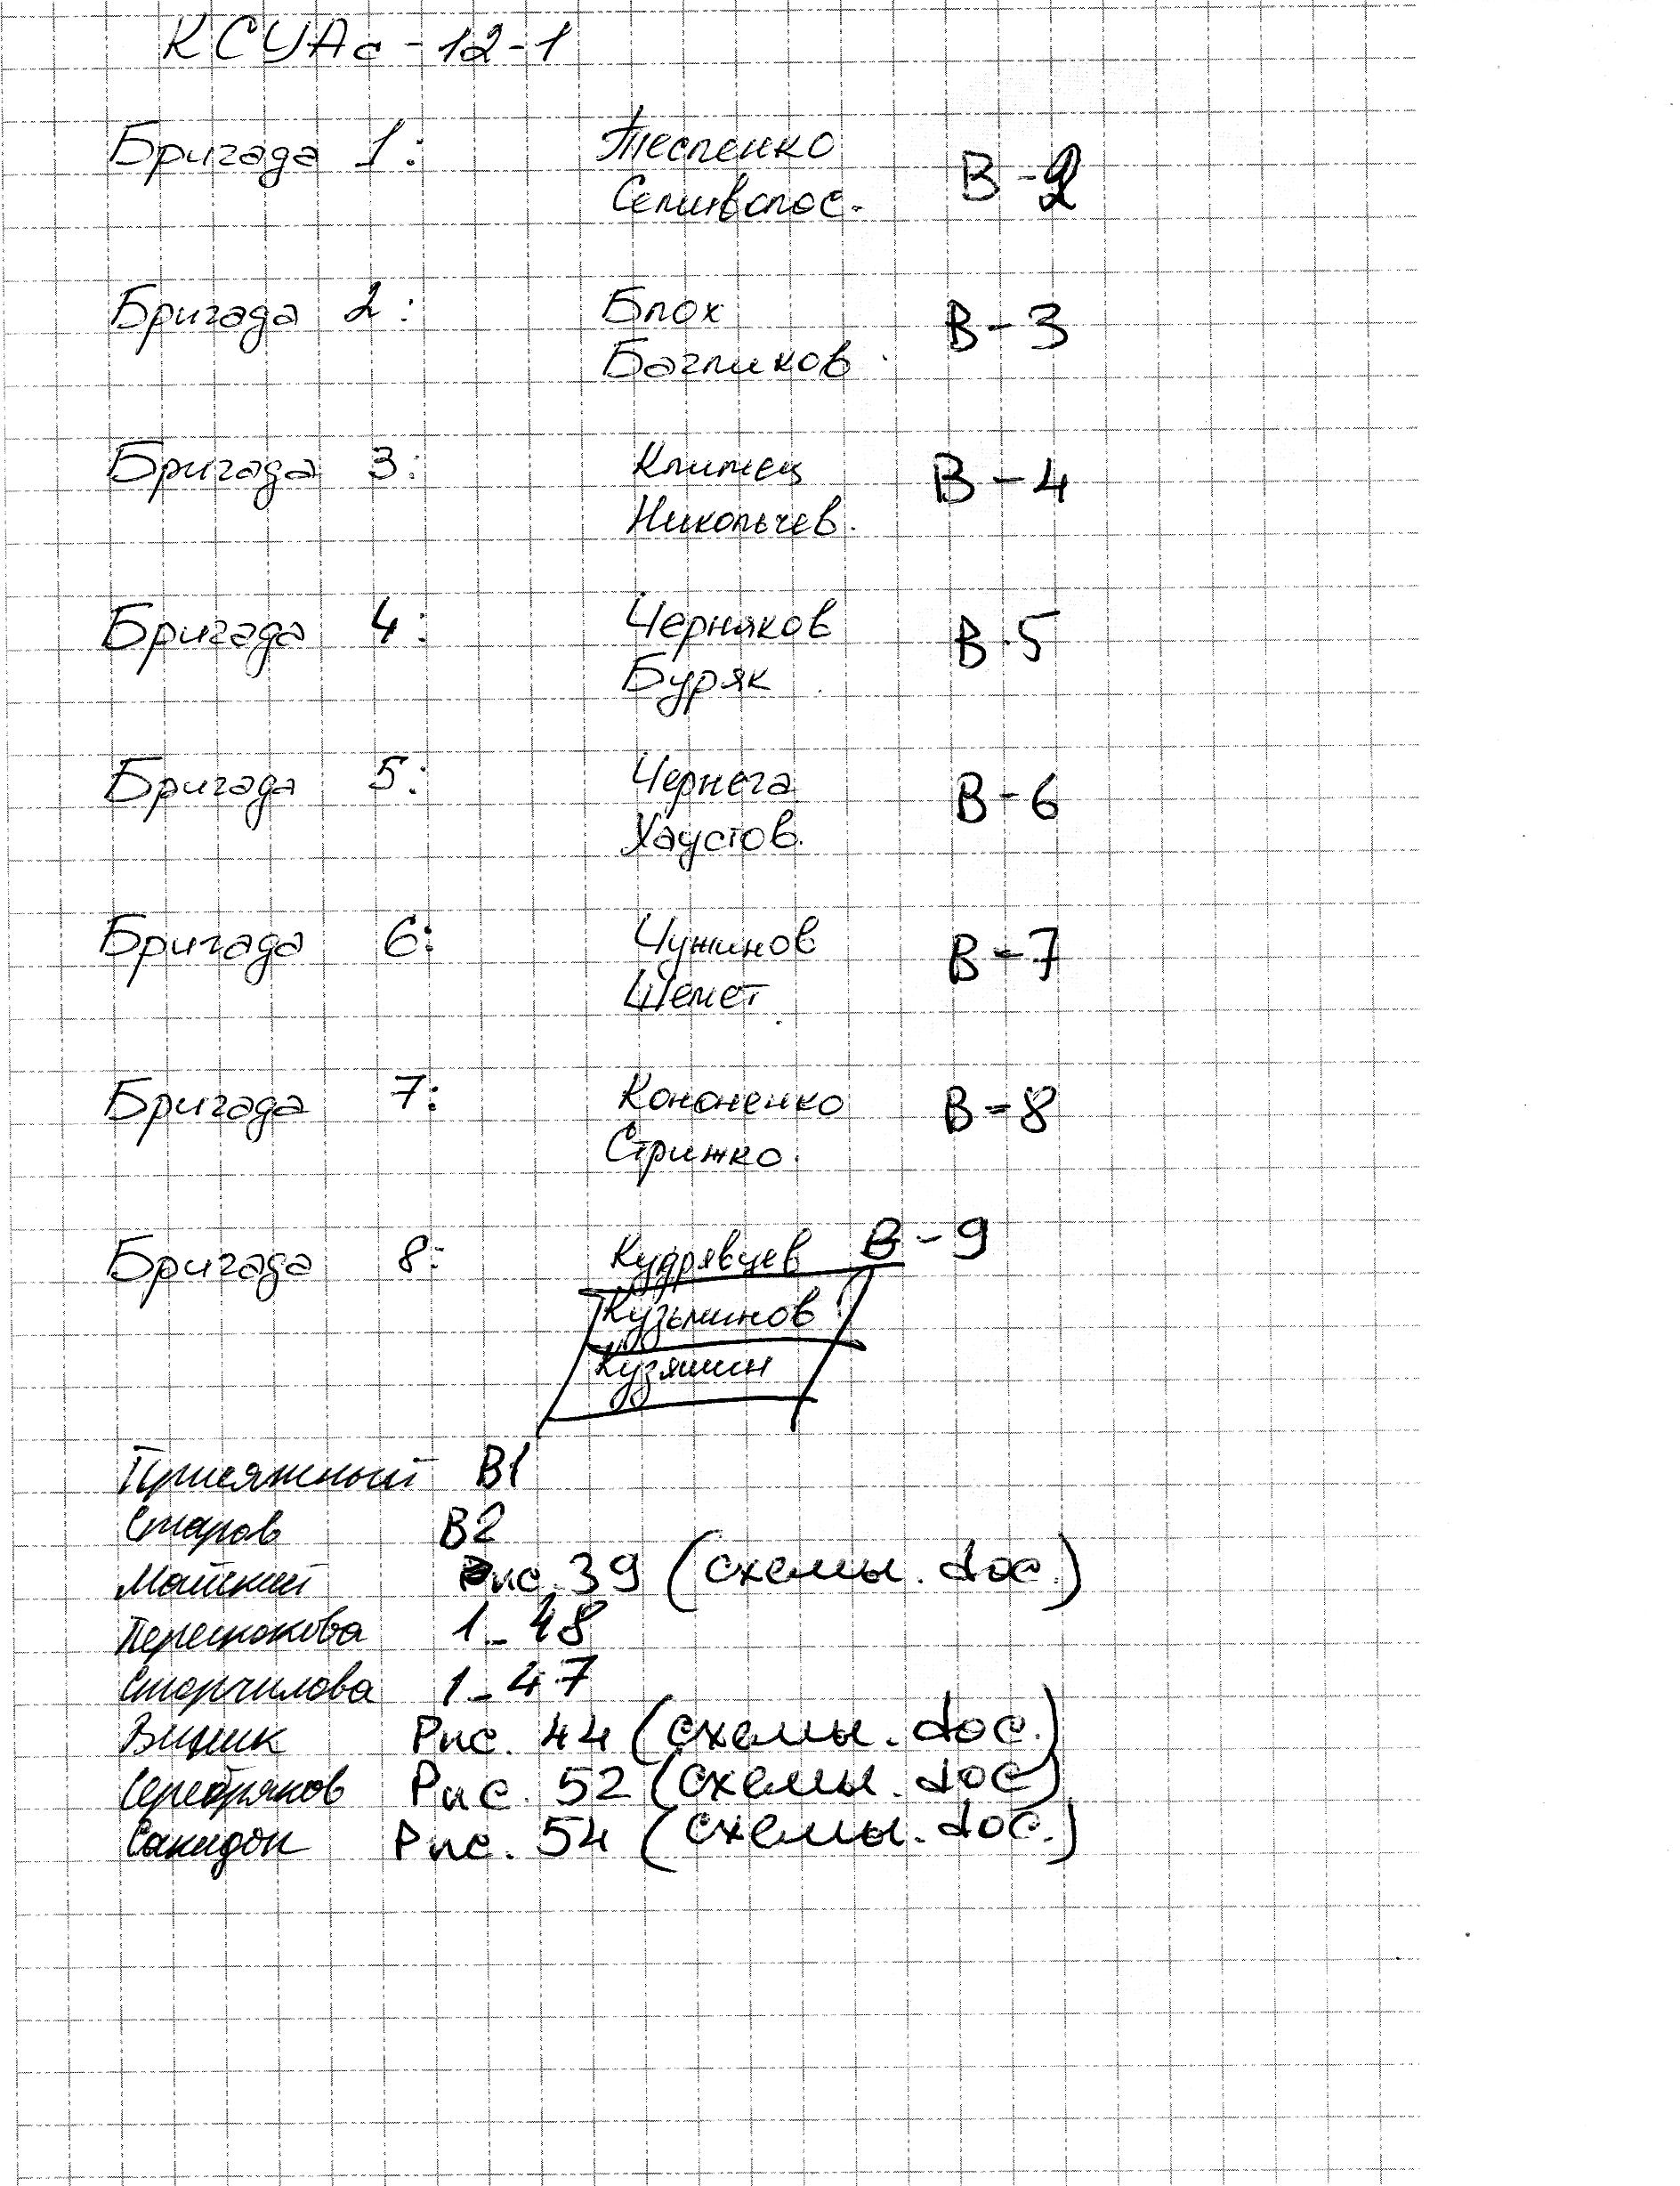 КСУАс-12-1
Бригада 1: Теспенко В-2
Селиволос.
Бригада 2: Блох В-3
Багликов.
Бригада 3: Климец В-4
Никольчев.
Бригада 4: Черняков В-5
Буряк
Бригада 5: Чернега В-6
Хаустов.
Бригада 6: Чужинов В-7
Шемет
Бригада 7: Кононенко В-8
Стрижко.
Бригада 8: Кудрявцев В-9
Кузьминов
Кузяшин
Присяжный В1
Старов В2
Майский Рис. 39 (схемы.doc.)
1-48
Сторчилова 1-47
Рис. 44 (схемы.doc.)
Серебряков Рис. 52 (схемы.doc)
Сакидон Рис. 54 (схемы.doc.)